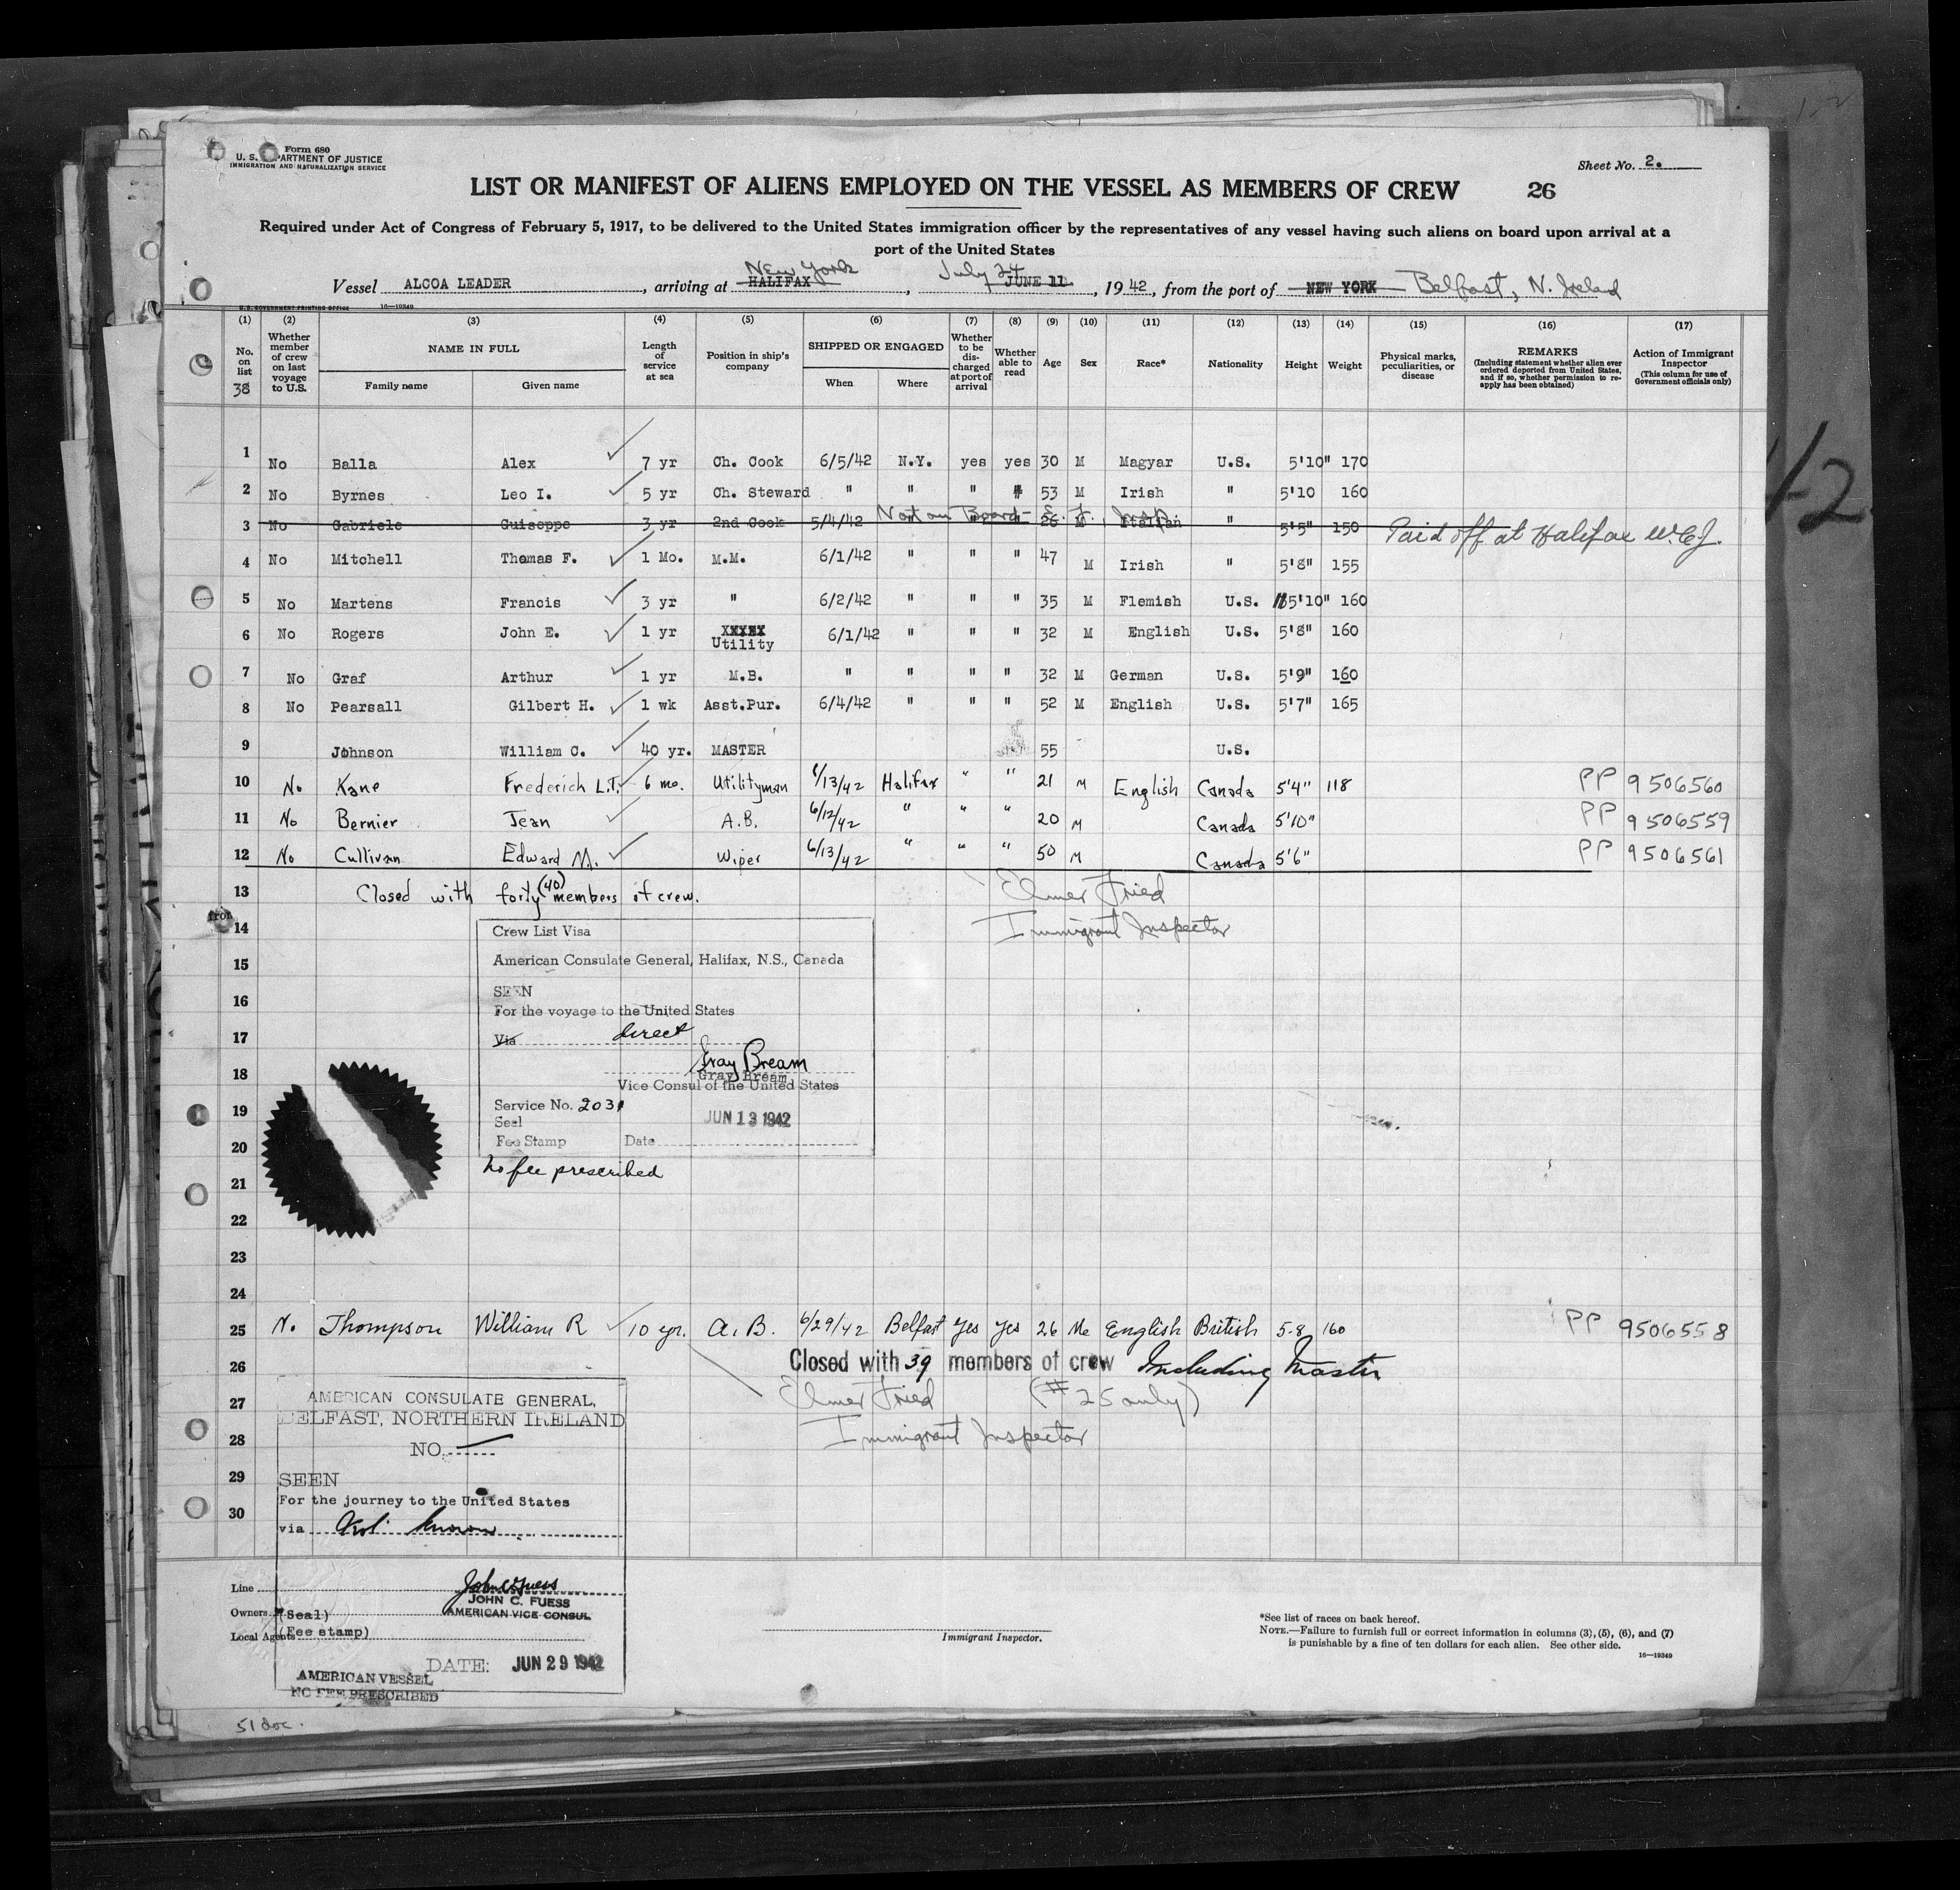 Form 680
U. S. DEPARTMENT OF JUSTICE
IMMIGRATION AND NATURALIZATION SERVICE
Sheet No. 2.
LIST OR MANIFEST OF ALIENS EMPLOYED ON THE VESSEL AS MEMBERS OF CREW 26
Required under Act of Congress of February 5, 1917, to be delivered to the United States immigration officer by the representatives of any vessel having such aliens on board upon arrival at a
port of the United States
New York July 24
Vessel ALCOA LEADER, arriving at HALIFAX, JUNE 11, 1942, from the port of NEW YORK Belfast, N. Ireland
U.S. GOVERNMENT PRINTING OFFICE 16—19349
(1) (2) (3) (4) (5) (6) (7) (8) (9) (10) (11) (12) (13) (14) (15) (16) (17)
No. on list
38
Whether member of crew on last voyage to U.S.
NAME IN FULL
Family name Given name
Length of service at sea
Position in ship's company
SHIPPED OR ENGAGED
When Where
Whether to be discharged at port of arrival
Whether able to read
Age
Sex
Race*
Nationality
Height
Weight
Physical marks, peculiarities, or disease
REMARKS
(Including statement whether alien ever ordered deported from United States, and if so, whether permission to reapply has been obtained)
Action of Immigrant Inspector
(This column for use of Government officials only)
1 No Balla Alex 7 yr Ch. Cook 6/5/42 N.Y. yes yes 30 M Magyar U.S. 5'10" 170
2 No Byrnes Leo I. 5 yr Ch. Steward " " " " 53 M Irish " 5'10 160
Not on Board - E. F., Insp.
3 No Gabriele Guiseppe 3 yr 2nd Cook 5/4/42 " " " 26 M Italian " 5'5" 150 Paid off at Halifax W.C.J.
4 No Mitchell Thomas F. 1 Mo. M.M. 6/1/42 " " " 47 M Irish " 5'8" 155
5 No Martens Francis 3 yr " 6/2/42 " " " 35 M Flemish U.S. 5'10" 160
6 No Rogers John E. 1 yr XXXXX Utility 6/1/42 " " " 32 M English U.S. 5'8" 160
7 No Graf Arthur 1 yr M.B. " " " " 32 M German U.S. 5'9" 160
8 No Pearsall Gilbert H. 1 wk Asst.Pur. 6/4/42 " " " 52 M English U.S. 5'7" 165
9 Johnson William C. 40 yr. MASTER 55 U.S.
10 No Kane Frederich L.T. 6 mo. Utilityman 6/13/42 Halifax " " 21 M English Canada 5'4" 118 PP 9506560
11 No Bernier Jean A.B. 6/12/42 " " " 20 M Canada 5'10" PP 9506559
12 No Cullivan Edward M. Wiper 6/13/42 " " " 50 M Canada 5'6" PP 9506561
13 Closed with forty (40) members of crew. Elmer Fried
14 Immigrant Inspector
Crew List Visa
15 American Consulate General, Halifax, N.S., Canada
16 SEEN
For the voyage to the United States
17 Via direct
Gray Bream
18 Gray Bream
Vice Consul of the United States
19 Service No. 2031
Seal JUN 13 1942
20 Fee Stamp Date
no fee prescribed
21
22
23
24
25 No Thompson William R 10 yr. A. B. 6/29/42 Belfast Yes Yes 26 Me English British 5-8 160 PP 9506558
26 Closed with 39 members of crew Including Master
27 Elmer Fried (#25 only)
28 Immigrant Inspector
29
30
AMERICAN CONSULATE GENERAL,
BELFAST, NORTHERN IRELAND
NO.
SEEN
For the journey to the United States
via
Line
Owners
Local Agents
John C Fuess
JOHN C. FUESS
AMERICAN VICE CONSUL
(Seal)
(Fee stamp)
DATE: JUN 29 1942
AMERICAN VESSEL
NO FEE PRESCRIBED
Immigrant Inspector.
*See list of races on back hereof.
NOTE.—Failure to furnish full or correct information in columns (3), (5), (6), and (7)
is punishable by a fine of ten dollars for each alien. See other side.
16—19349
51 doc.